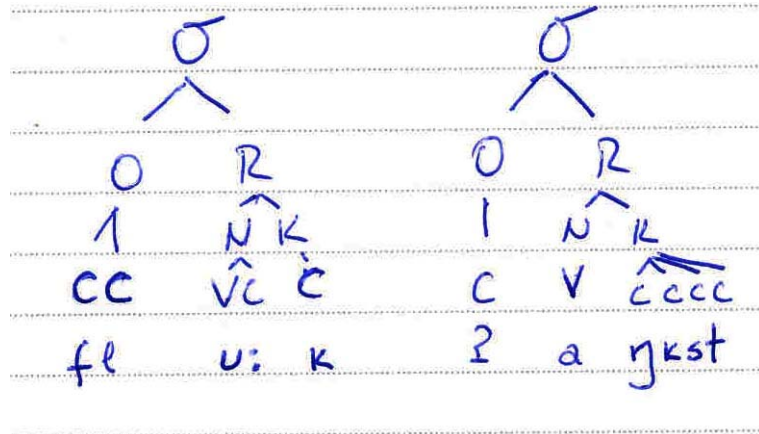 σ σ
O R O R
N K N K
CC VC C C V CCCC
fl u: k ʔ a ŋkst